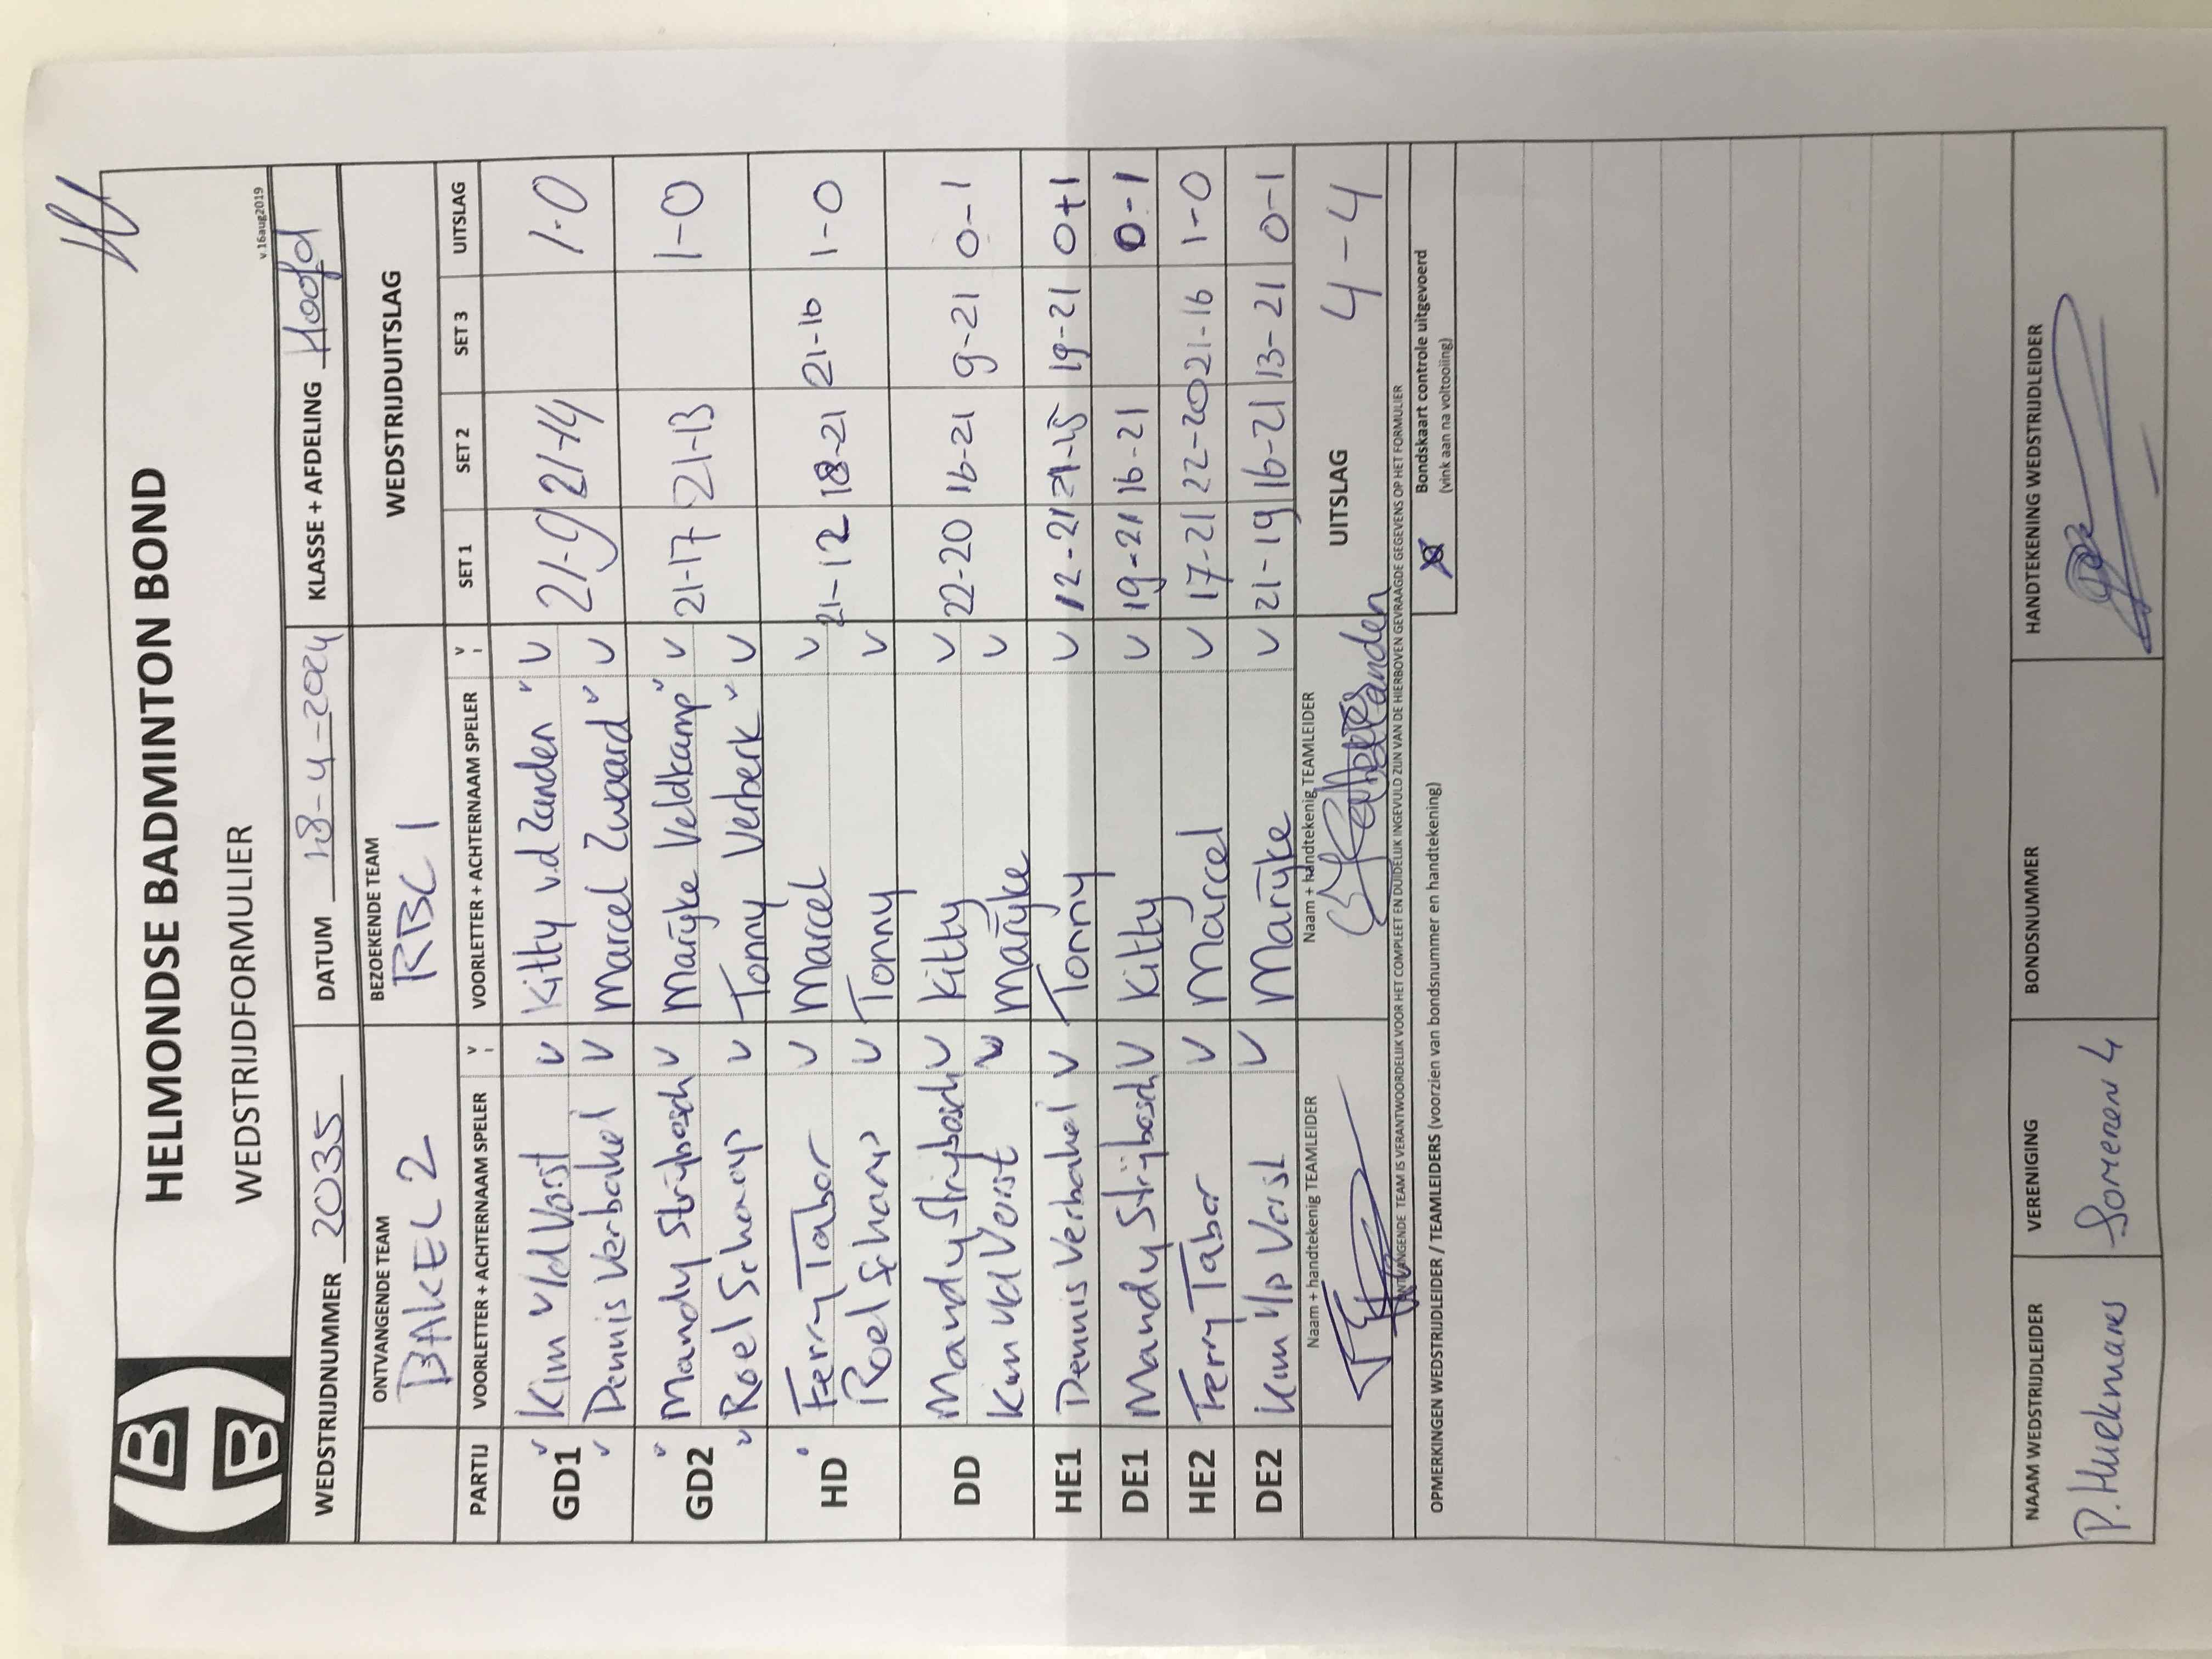 HELMONDSE BADMINTON BOND
WEDSTRIJDFORMULIER
v.16aug2019
WEDSTRIJDNUMMER 2035 DATUM 18-4-2024 KLASSE + AFDELING Hoofd
ONTVANGENDE TEAM BEZOEKENDE TEAM WEDSTRIJDUITSLAG
BAKEL 2 RBC 1
PARTIJ VOORLETTER + ACHTERNAAM SPELER V VOORLETTER + ACHTERNAAM SPELER V SET 1 SET 2 SET 3 UITSLAG
GD1 Kim v/d Vorst V Kitty v.d Zanden V 21-9 21-14 1-0
Dennis Verbakel V Marcel Zwaard V
GD2 Mandy Strijbosch V Marijke Veldkamp V 21-17 21-13 1-0
Roel Schaap V Tonny Verberk V
HD Ferry Tabor V Marcel V 21-12 18-21 21-16 1-0
Roel Schaap V Tonny V
DD Mandy Strijbosch V Kitty V 22-20 16-21 9-21 0-1
Kim v/d Vorst V Marijke V
HE1 Dennis Verbakel V Tonny V 12-21 21-15 19-21 0-1
DE1 Mandy Strijbosch V Kitty V 19-21 16-21 0-1
HE2 Ferry Tabor V Marcel V 17-21 22-20 21-16 1-0
DE2 Kim v/d Vorst V Marijke V 21-19 16-21 13-21 0-1
Naam + handtekenig TEAMLEIDER Naam + handtekenig TEAMLEIDER UITSLAG 4-4
ONTVANGENDE TEAM IS VERANTWOORDELIJK VOOR HET COMPLEET EN DUIDELIJK INGEVULD ZIJN VAN DE HIERBOVEN GEVRAAGDE GEGEVENS OP HET FORMULIER
Bondskaart controle uitgevoerd
(vink aan na voltooiing)
OPMERKINGEN WEDSTRIJDLEIDER / TEAMLEIDERS (voorzien van bondsnummer en handtekening)
NAAM WEDSTRIJDLEIDER VERENIGING BONDSNUMMER HANDTEKENING WEDSTRIJDLEIDER
P. Hurkmans Someren 4